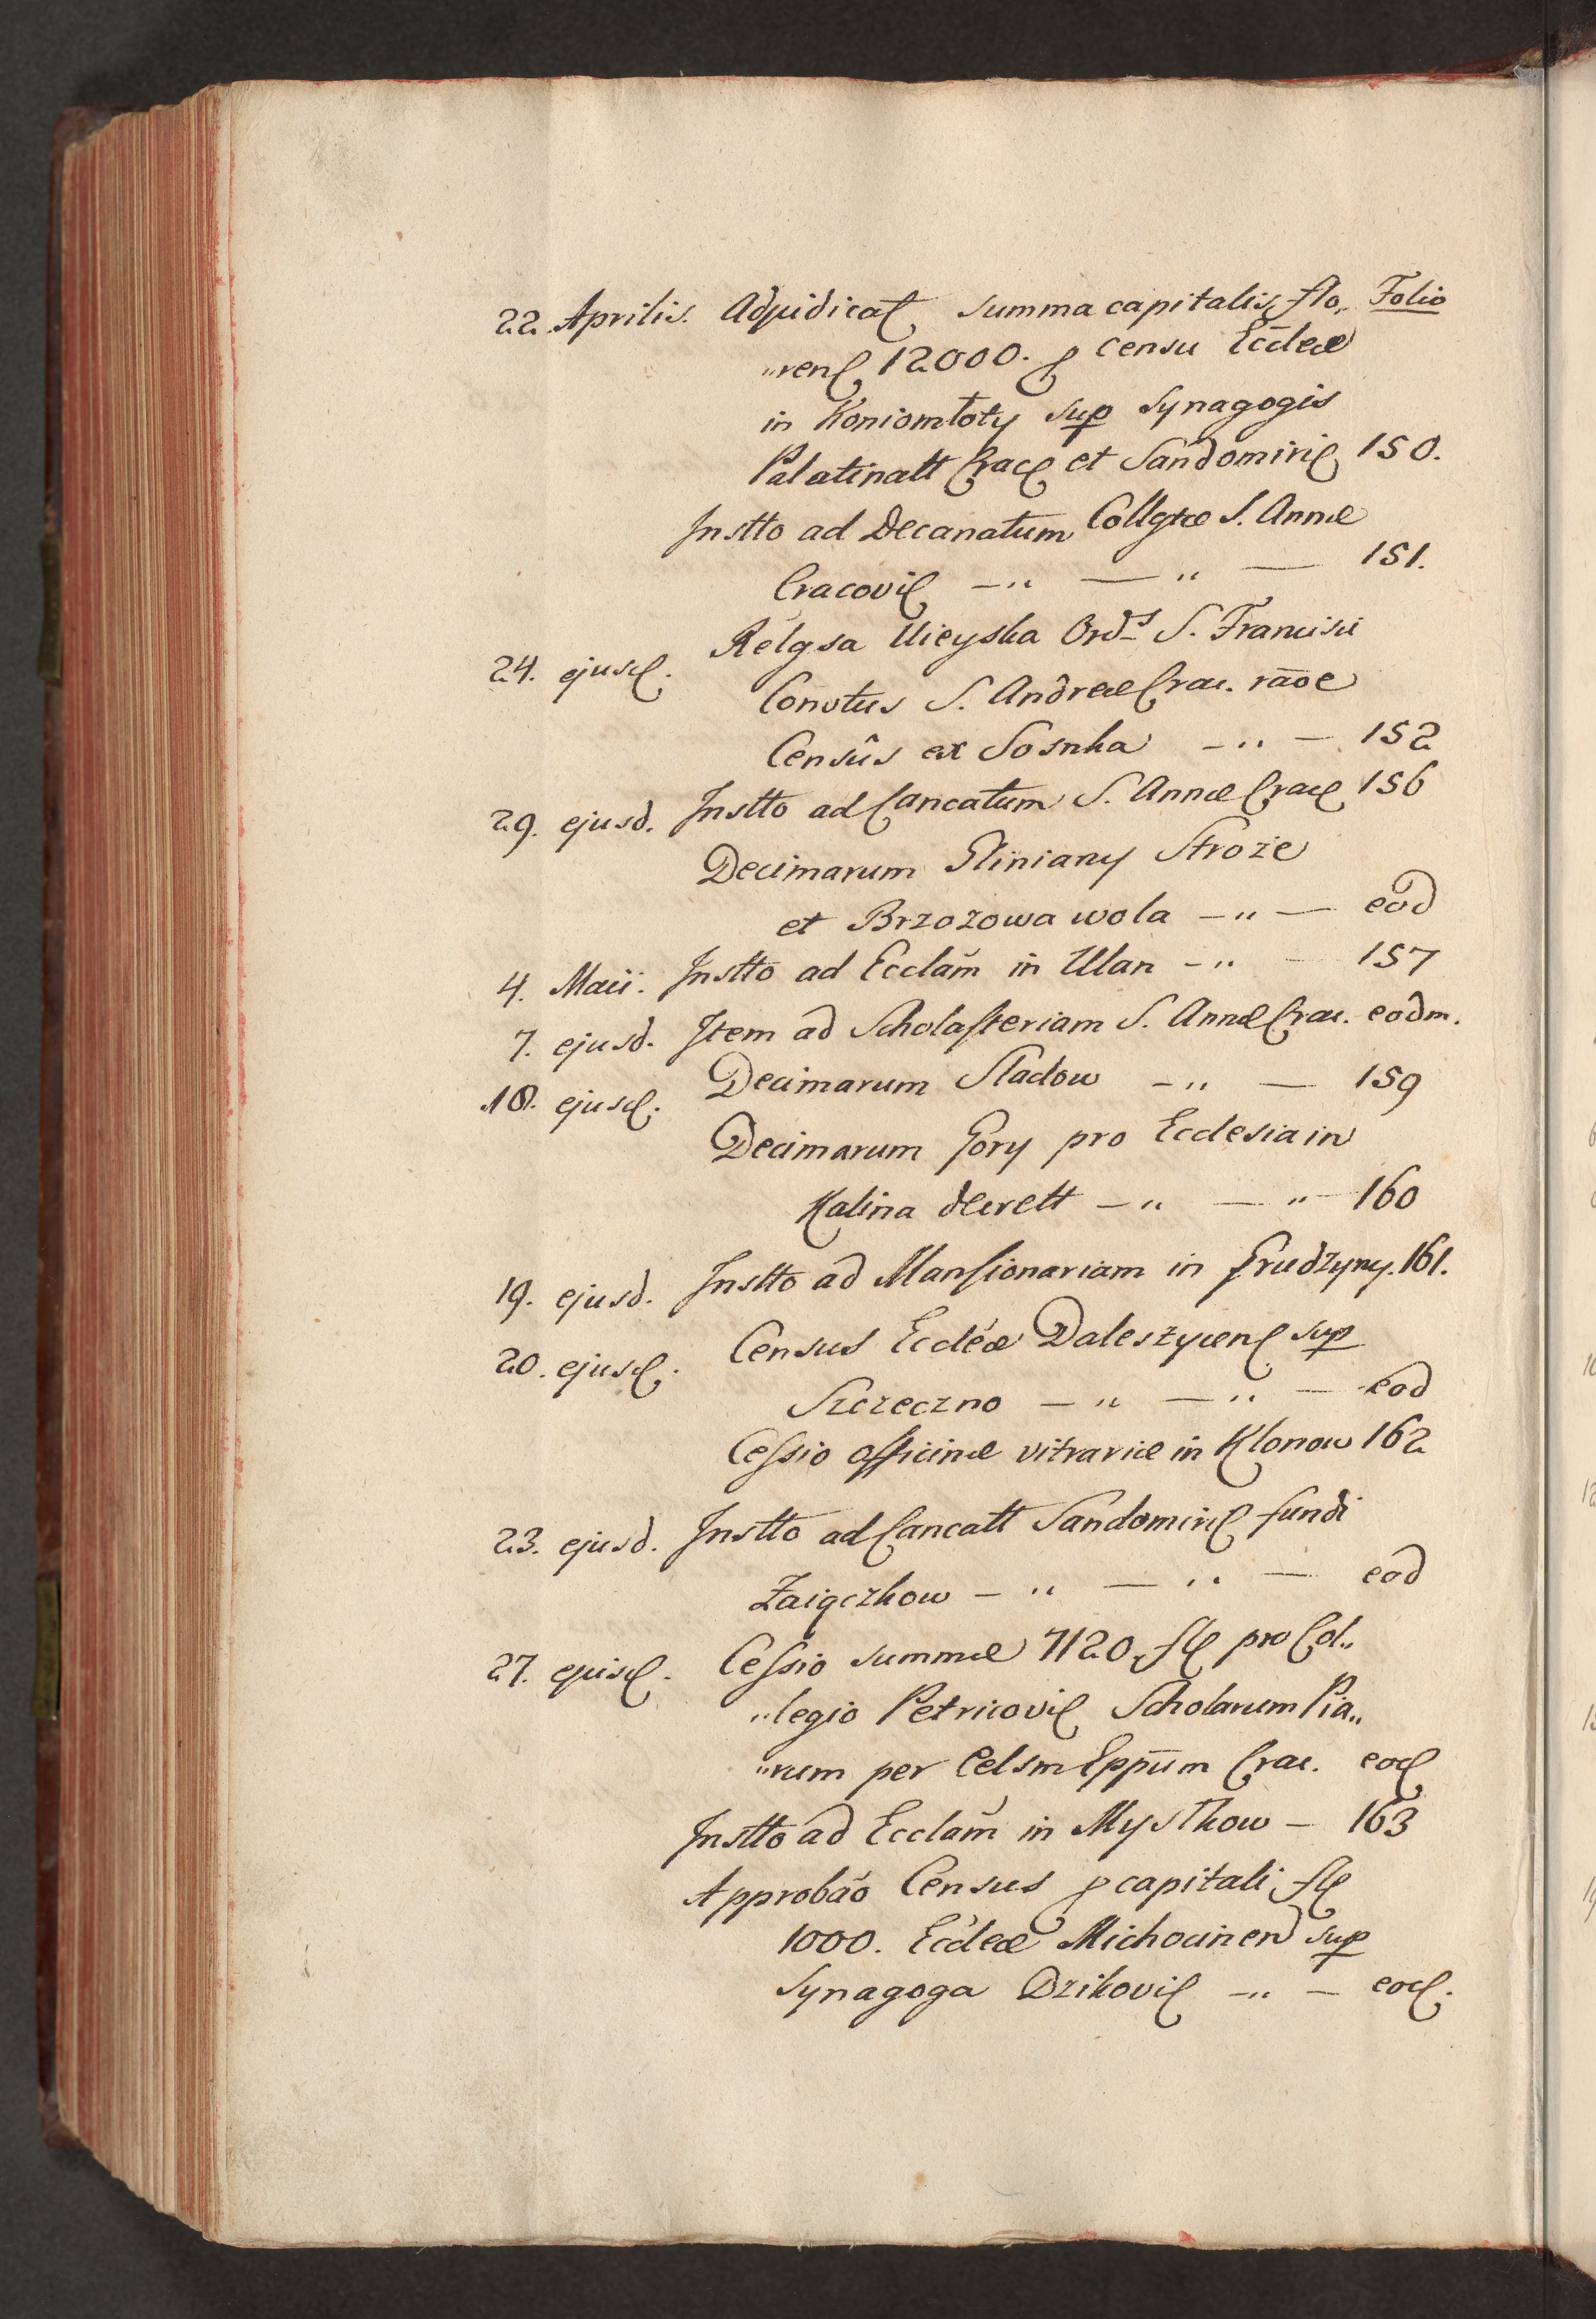 22. Aprilis. Adjudicat summa capitalis flo„ Folio
„ren 12000. p censu Ecclæ
in Koniomłoty sup Synagogis
Palatinatt Crac et Sandomiri 150.
Instto ad Decanatum Collgtæ S. Annæ
Cracovi —„ — „ — 151.
24. ejusd. Relgsa Uieyska Ords S. Francisci
Convtus S. Andreæ Crac. raōe
Censûs ex Sosnka —„ — 152
29. ejusd. Instto ad Cancatum S. Annæ Crac 156
Decimarum Gliniany Stroże
et Brzozowa wola —„ — eod
4. Maii. Instto ad Ecclam in Ulan —„ — 157
7. ejusd. Item ad Scholasteriam S. Annæ Crac. eodm.
18. ejusd. Decimarum Sladow —„ — 159
Decimarum Gory pro Ecclesia in
Kalina decrett —„ — „ — 160
19. ejusd. Instto ad Mansionariam in Grudzyny. 161.
20. ejusd. Census Eccléæ Daleszycen sup
Szczeczno — „ — „ — eod
Cessio officinæ vitrariæ in Klonow 162
23. ejusd. Instto ad Cancatt Sandomiri fundi
Zaiączkow — „ — „ — eod
27. ejusd. Cessio summæ 7120 fl pro Col„
„legio Petricovi Scholarum Pia„
„rum per Celsm Eppum Crac. eod
Instto ad Ecclam in Mystkow — 163
Approbāo Census p capitali fl
1000. Ecclæ Miechocinen sup
Synagoga Dzikovi —„ — eod.